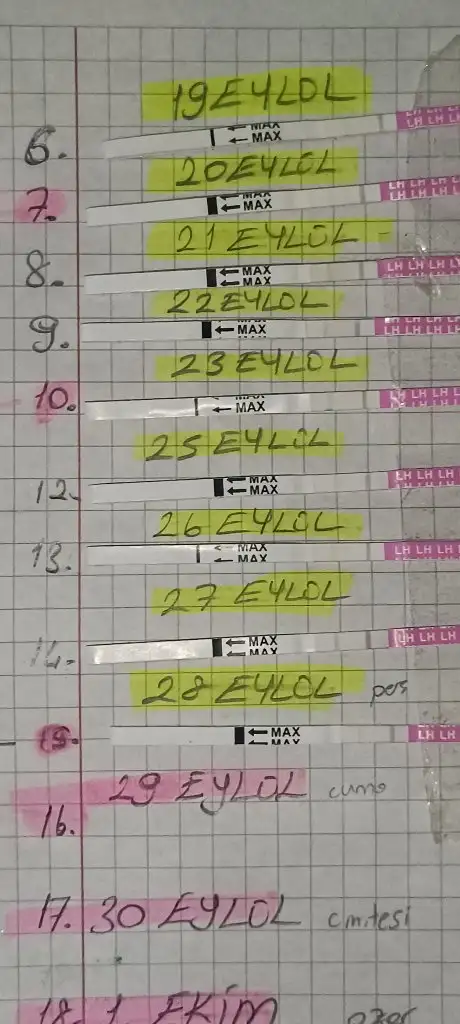 19 EYLÜL
6. ← MAX ← MAX LH LH LH L
20 EYLÜL
7. MAX ← MAX LH LH LH L
21 EYLÜL
8. ← MAX ← MAX LH LH LH
22 EYLÜL
9. ← MAX LH LH LH
23 EYLÜL
10. ← MAX LH LH LH
25 EYLÜL
12. ← MAX ← MAX LH LH LH
26 EYLÜL
13. ← MAX ← MAX LH LH LH
27 EYLÜL
14. ← MAX ← MAX LH LH LH
28 EYLÜL per
15. ← MAX ← MAX LH LH
29 EYLÜL cuma
16.
17. 30 EYLÜL cmtesi
18. 1 EKİM pazar